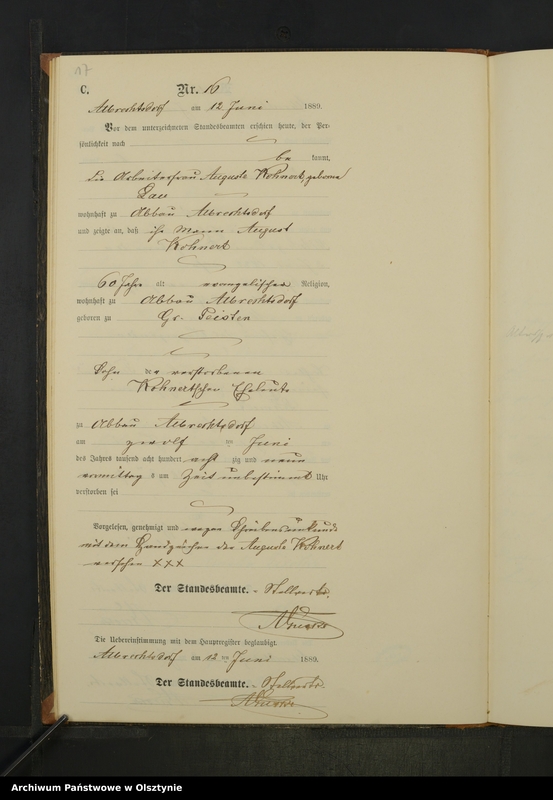 17
C. Nr. 16
Albrechtsdorf am 12 Juni 1889.
Vor dem unterzeichneten Standesbeamten erschien heute, der Per-
sönlichkeit nach
be kannt,
die Arbeiterfrau Auguste Kohnert, geborene
Lau
wohnhaft zu Abbau Albrechtsdorf
und zeigte an, daß ihr Mann August
Kohnert
60 Jahre alt evangelischer Religion,
wohnhaft zu Abbau Albrechtsdorf
geboren zu Gr. Peisten
Sohn der verstorbenen
Kohnertschen Eheleute
zu Abbau Albrechtsdorf
am zwölf ten Juni
des Jahres tausend acht hundert acht zig und neun
vormittag s um Zeit unbestimmt Uhr
verstorben sei
Vorgelesen, genehmigt und wegen Schreibensunkunde
mit dem Handzeichen der Auguste Kohnert
versehen XXX
Der Standesbeamte. Stellvertr.
Die Uebereinstimmung mit dem Hauptregister beglaubigt.
Albrechtsdorf am 12 ten Juni 1889.
Der Standesbeamte. Stellvertr.
Archiwum Państwowe w Olsztynie